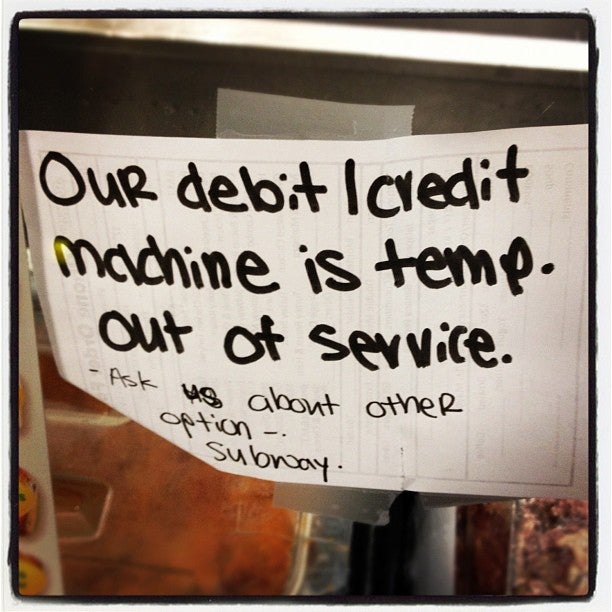 OUR debit / credit
machine is temp.
out of service.
- Ask us about other
option -.
Subway.